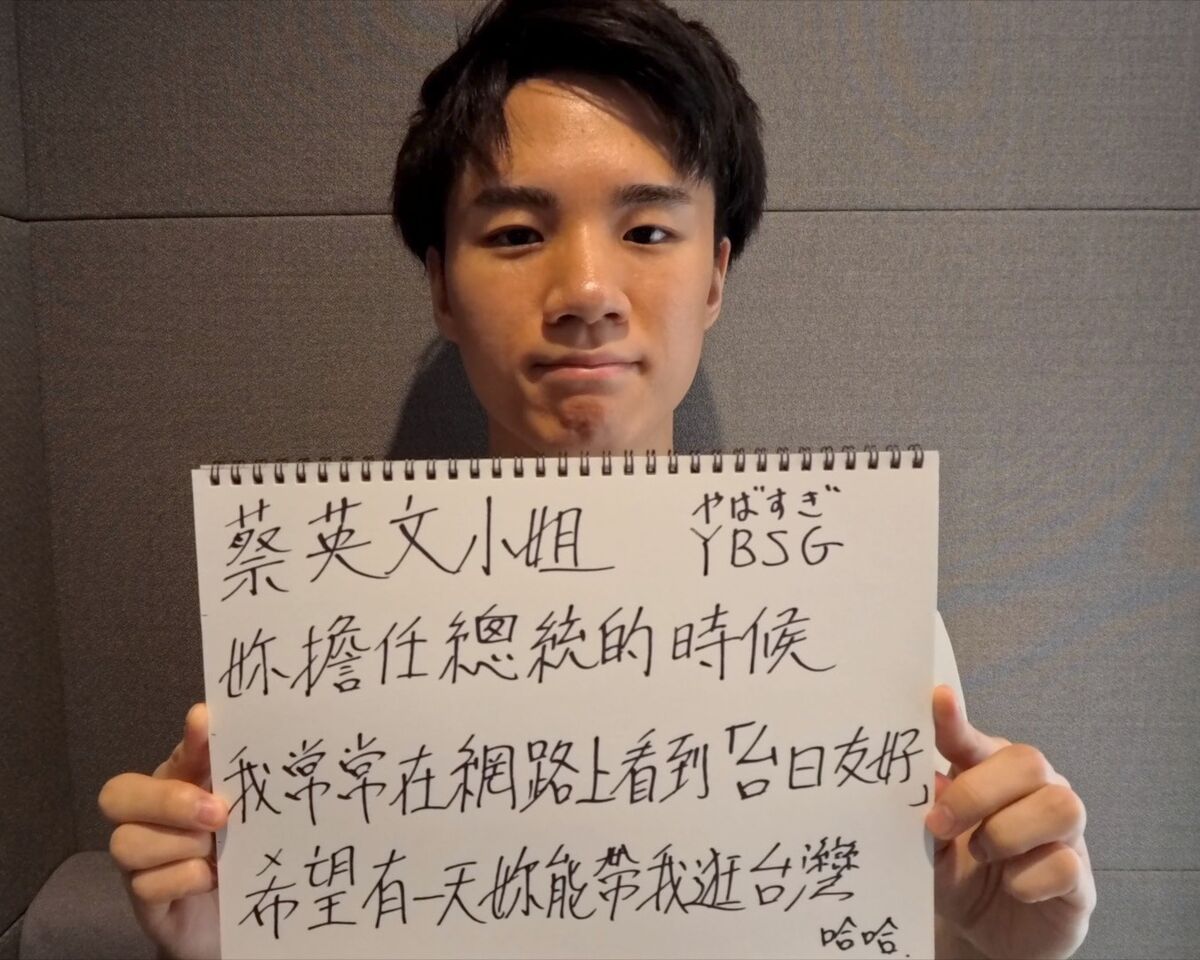 蔡英文小姐
やばすぎ
YBSG
妳擔任總統的時候
我常常在網路上看到「台日友好」
希望有一天妳能帶我逛台灣
哈哈.